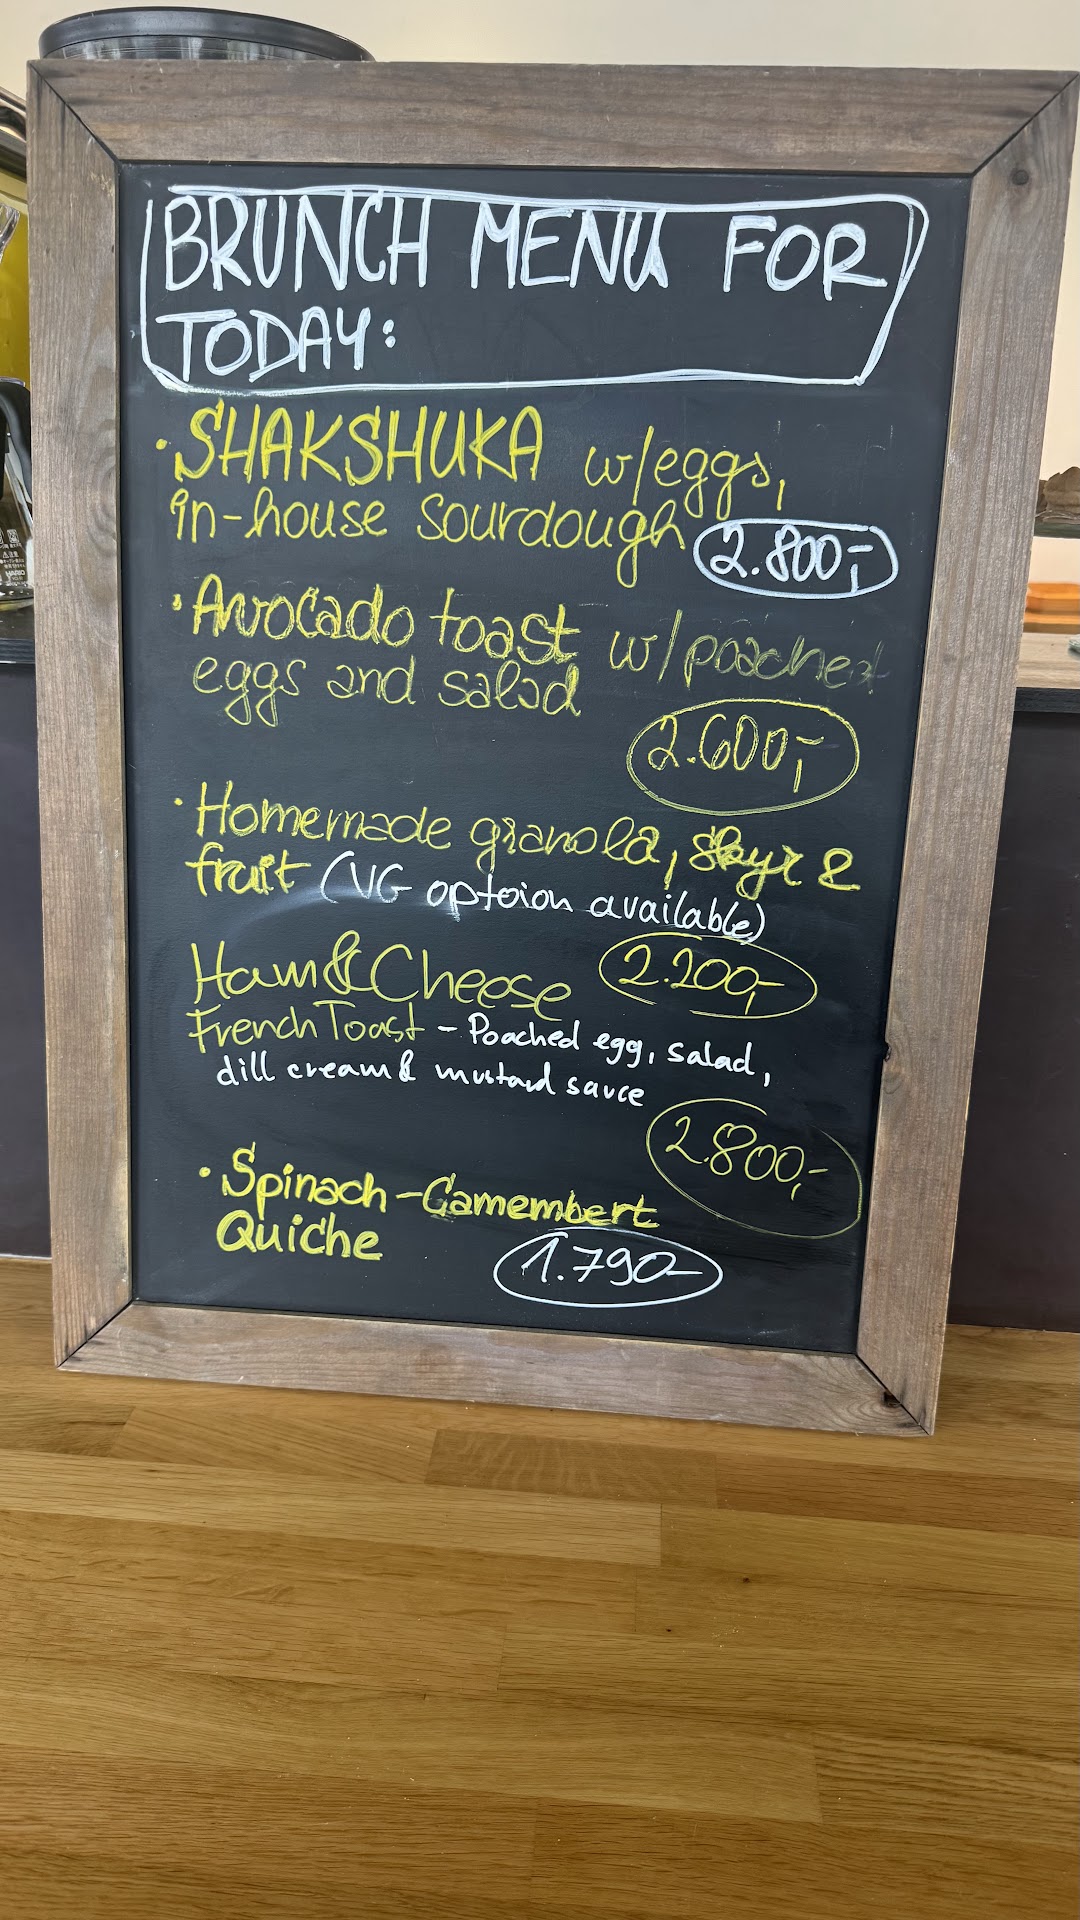 BRUNCH MENU FOR
TODAY:
• SHAKSHUKA w/eggs,
in-house sourdough 2.800,-
• Avocado toast w/poached
eggs and salad
2.600,-
• Homemade granola, skyr &
fruit (VG optoion available)
Ham&Cheese 2.200,-
French Toast - Poached egg, salad,
dill cream & mustard sauce
2.800,-
• Spinach-Camembert
Quiche 1.790-